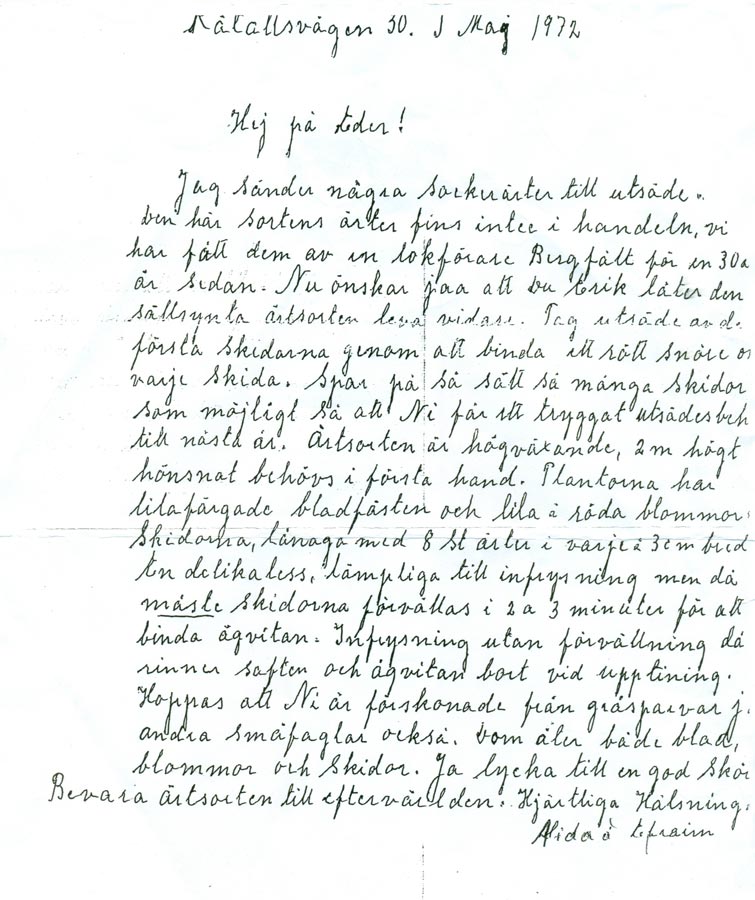 Kålallsvägen 30. 1 Maj 1972
Hej på Eder!
Jag sänder några sockerärter till utsäde.
Den här sortens ärter fins inte i handeln, vi
har fått dem av en lokförare Bergfält för en 30a
år sedan. Nu önskar jaa att Du Erik låter den
sällsynta ärtsorten leva vidare. Tag utsäde av de
första skidorna genom att binda ett rött snöre o
varje skida. Spar på så sätt så många skidor
som möjligt så att Ni får ett tryggat utsädesbeh
till nästa år. Ärtsorten är högväxande, 2 m högt
hönsnät behövs i första hand. Plantorna har
lilafärgade bladfästen och lila à röda blommor
Skidorna, långa med 8 st ärter i varje à 3 cm bred
En delikatess, lämpliga till infrysning men då
måste skidorna förvällas i 2 a 3 minuter för att
binda ägvitan. Infrysning utan förvällning då
rinner saften och ägvitan bort vid upptining.
Hoppas att Ni är förskonade från gråsparvar
andra småfåglar också. Som äter både blad,
blommor och skidor. Ja lycka till en god skör
Bevara ärtsorten till eftervärlden. Hjärtliga Hälsning.
Alida o Efraim